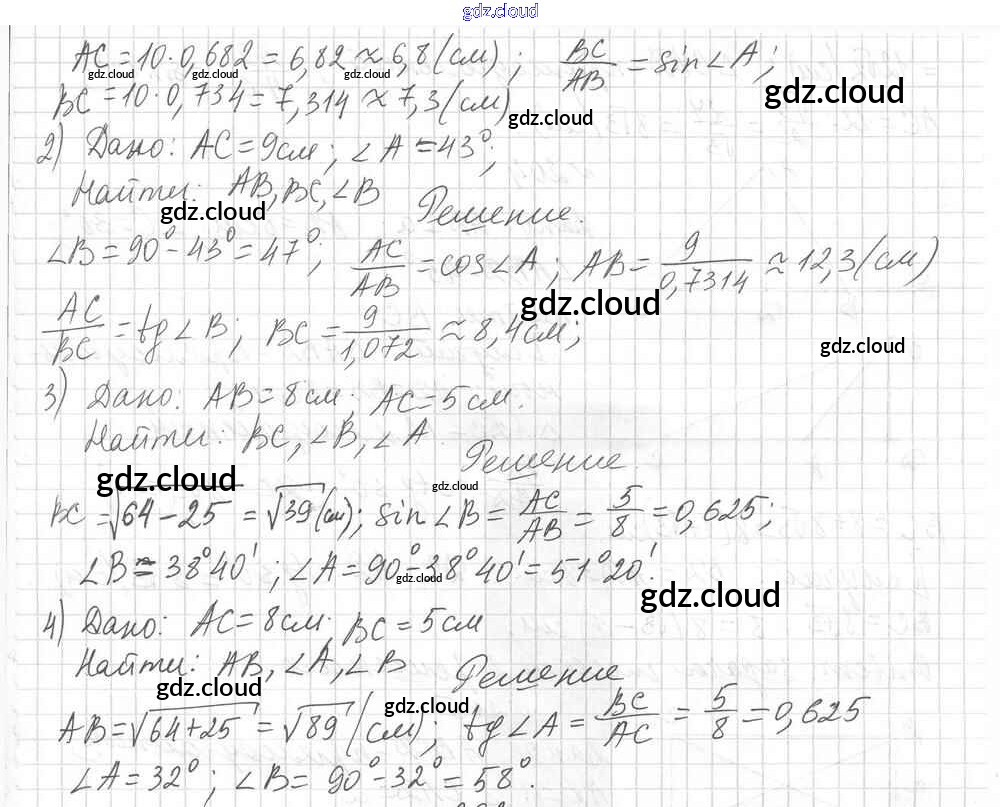 gdz.cloud
AC = 10·0,682 = 6,82 ≈ 6,8 (см) ; BC/AB = sin∠A ;
gdz.cloud gdz.cloud gdz.cloud
gdz.cloud
BC = 10·0,734 = 7,314 ≈ 7,3 (см)
gdz.cloud
2) Дано: AC = 9см ; ∠A = 43° ;
Найти: AB, BC, ∠B
gdz.cloud
Решение.
∠B = 90° - 43° = 47° ; AC/AB = cos∠A ; AB = 9/0,7314 ≈ 12,3 (см)
gdz.cloud
AC/BC = tg∠B ; BC = 9/1,072 ≈ 8,4см ;
gdz.cloud
3) Дано: AB = 8см ; AC = 5см.
Найти: BC, ∠B, ∠A.
Решение
gdz.cloud
gdz.cloud
BC = √64-25 = √39 (см) ; sin∠B = AC/AB = 5/8 = 0,625 ;
∠B = 38°40' ; ∠A = 90° - 38°40' = 51°20'.
gdz.cloud
gdz.cloud
4) Дано: AC = 8см ; BC = 5см
Найти: AB, ∠A, ∠B
Решение
gdz.cloud
gdz.cloud
AB = √64+25 = √89 (см) ; tg∠A = BC/AC = 5/8 = 0,625
∠A = 32° ; ∠B = 90° - 32° = 58°.